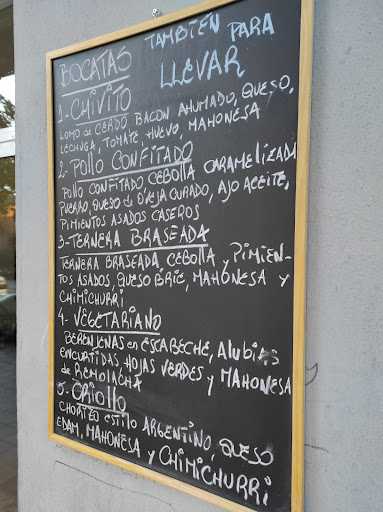 BOCATAS TAMBIEN PARA
LLEVAR
1-CHIVITO
LOMO de CERDO BACON AHUMADO, QUESO,
LECHUGA, TOMATE, HUEVO, MAHONESA
2-POLLO CONFITADO
POLLO CONFITADO CEBOLLA CARAMELIZADA
PUERRO, QUESO de OVEJA CURADO, AJO ACEITE,
PIMIENTOS ASADOS CASEROS
3-TERNERA BRASEADA
TERNERA BRASEADA, CEBOLLA y PIMIEN-
TOS ASADOS, QUESO BRIE, MAHONESA Y
CHIMICHURRI
4- VEGETARIANO
BERENJENAS en ESCABECHE, AlubiAS
ENCURTIDAS HOJAS VERDES y MAHONESA
de REMOLACHA
5- CRIOLLO
CHORIZO ESTILO ARGENTINO, QUESO
EDAM, MAHONESA Y CHIMICHURRI